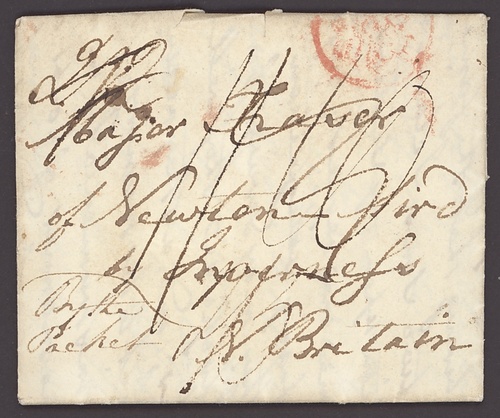 Major Fraser
of Newton Aird
by Inverness
By the
Packet
N. Britain